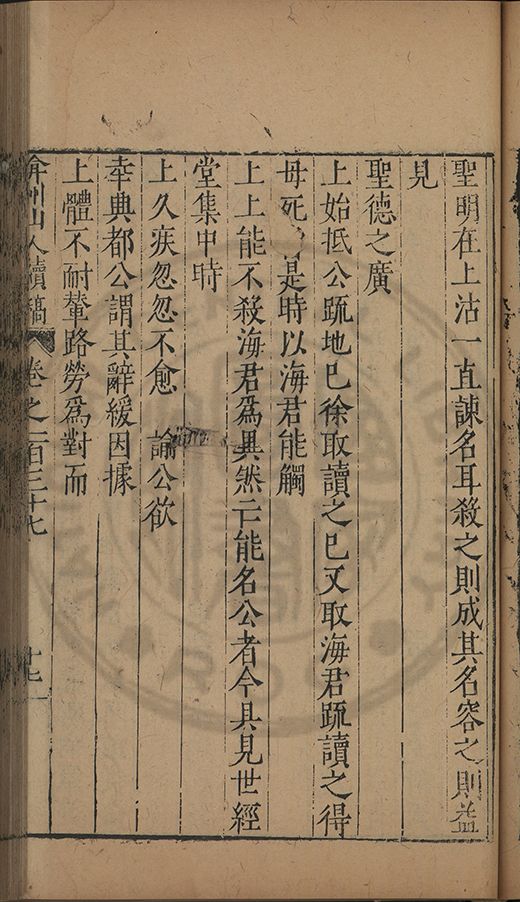 聖明在上沽一直諫名耳殺之則成其名容之則益
見
聖德之廣
上始抵公疏地已徐取讀之已又取海君疏讀之得
毋死是時以海君能觸
上上能不殺海君爲異然亡能名公者今具見世經
堂集中時
上久疾忽忽不愈　諭公欲
幸典都公謂其辭緩因據
上體不耐輦路勞爲對而
弇州山人續稿　卷之一百三十七　十七